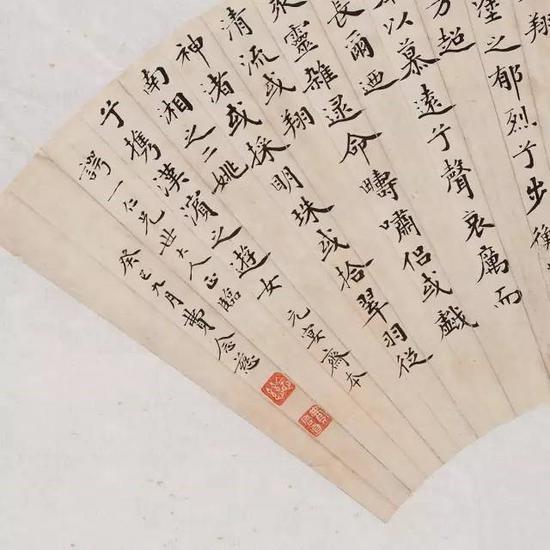 翔
塗之郁烈兮步蘅
芳超
以慕遠兮聲哀厲而
長爾迺
靈雜遝命疇嘯侶或戲
清流或翔
神渚或採明珠或拾翠羽從
南湘之二姚
兮攜漢濱之遊女 元宴齋本
一仁兄世大人正臨
癸巳九月費念慈